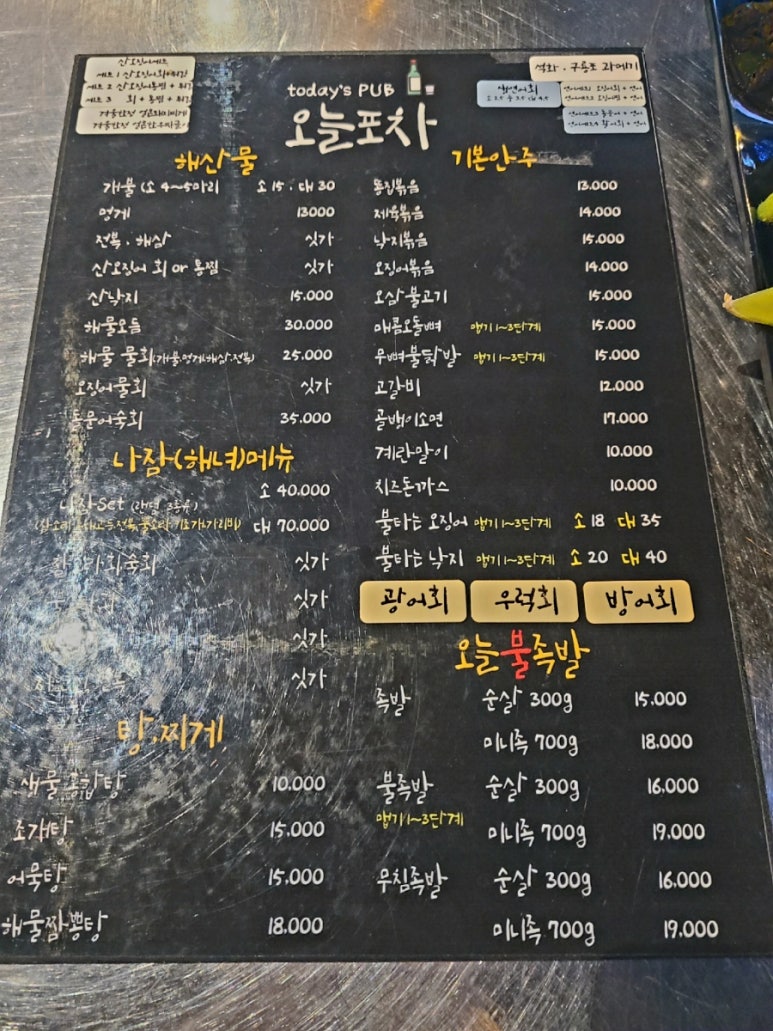 산오징어세트
세트 1 산오징어회+튀김
세트 2 산오징어통찜 + 튀김
세트 3 회 + 통찜 + 튀김
today's PUB
오늘포차
생연어회
석화 . 구룡포 과메기
해산물
개불 (소 4~5마리 소 15 . 대 30
멍게 13000
전복 . 해삼 싯가
산오징어 회 or 통찜 싯가
산낙지 15.000
해물모듬 30.000
해물 물회(개불,멍게,해삼,전복) 25.000
오징어물회 싯가
돌문어숙회 35.000
나잠(해녀)메뉴
나잠Set (랜덤 3종류) 소 40.000
대 70,000
숙회 싯가
싯가
싯가
싯가
탕.찌게
홍합탕 10.000
조개탕 15.000
어묵탕 15,000
해물짬뽕탕 18.000
기본안주
똥집볶음 13.000
제육볶음 14.000
낙지볶음 15.000
오징어볶음 14.000
오삼불고기 15.000
매콤오돌뼈 맵기 1~3단계 15.000
무뼈불닭발 맵기 1~3단계 15.000
고갈비 12.000
골뱅이소면 17.000
계란말이 10.000
치즈돈까스 10.000
불타는 오징어 맵기 1~3단계 소 18 대 35
불타는 낙지 맵기 1~3단계 소 20 대 40
광어회 우럭회 방어회
오늘불족발
족발 순살 300g 15,000
미니족 700g 18,000
불족발 순살 300g 16,000
맵기 1~3단계
미니족 700g 19,000
무침족발 순살 300g 16,000
미니족 700g 19,000